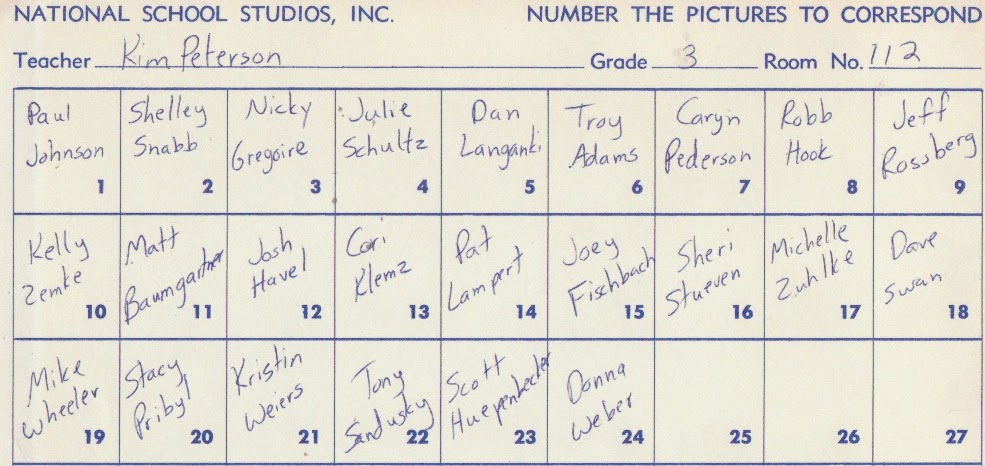 NATIONAL SCHOOL STUDIOS, INC. NUMBER THE PICTURES TO CORRESPOND
Teacher Kim Peterson Grade 3 Room No. 112
Paul Johnson 1
Shelley Snabb 2
Nicky Gregoire 3
Julie Schultz 4
Dan Langanki 5
Troy Adams 6
Caryn Pederson 7
Robb Hook 8
Jeff Rossberg 9
Kelly Zemke 10
Matt Baumgartner 11
Josh Havel 12
Cori Klemz 13
Pat Lampert 14
Joey Fischbach 15
Sheri Stueven 16
Michelle Zuhlke 17
Dave Swan 18
Mike Wheeler 19
Stacy Pribyl 20
Kristin Weiers 21
Tony Sandusky 22
Scott Huepenbecker 23
Donna Weber 24
25
26
27